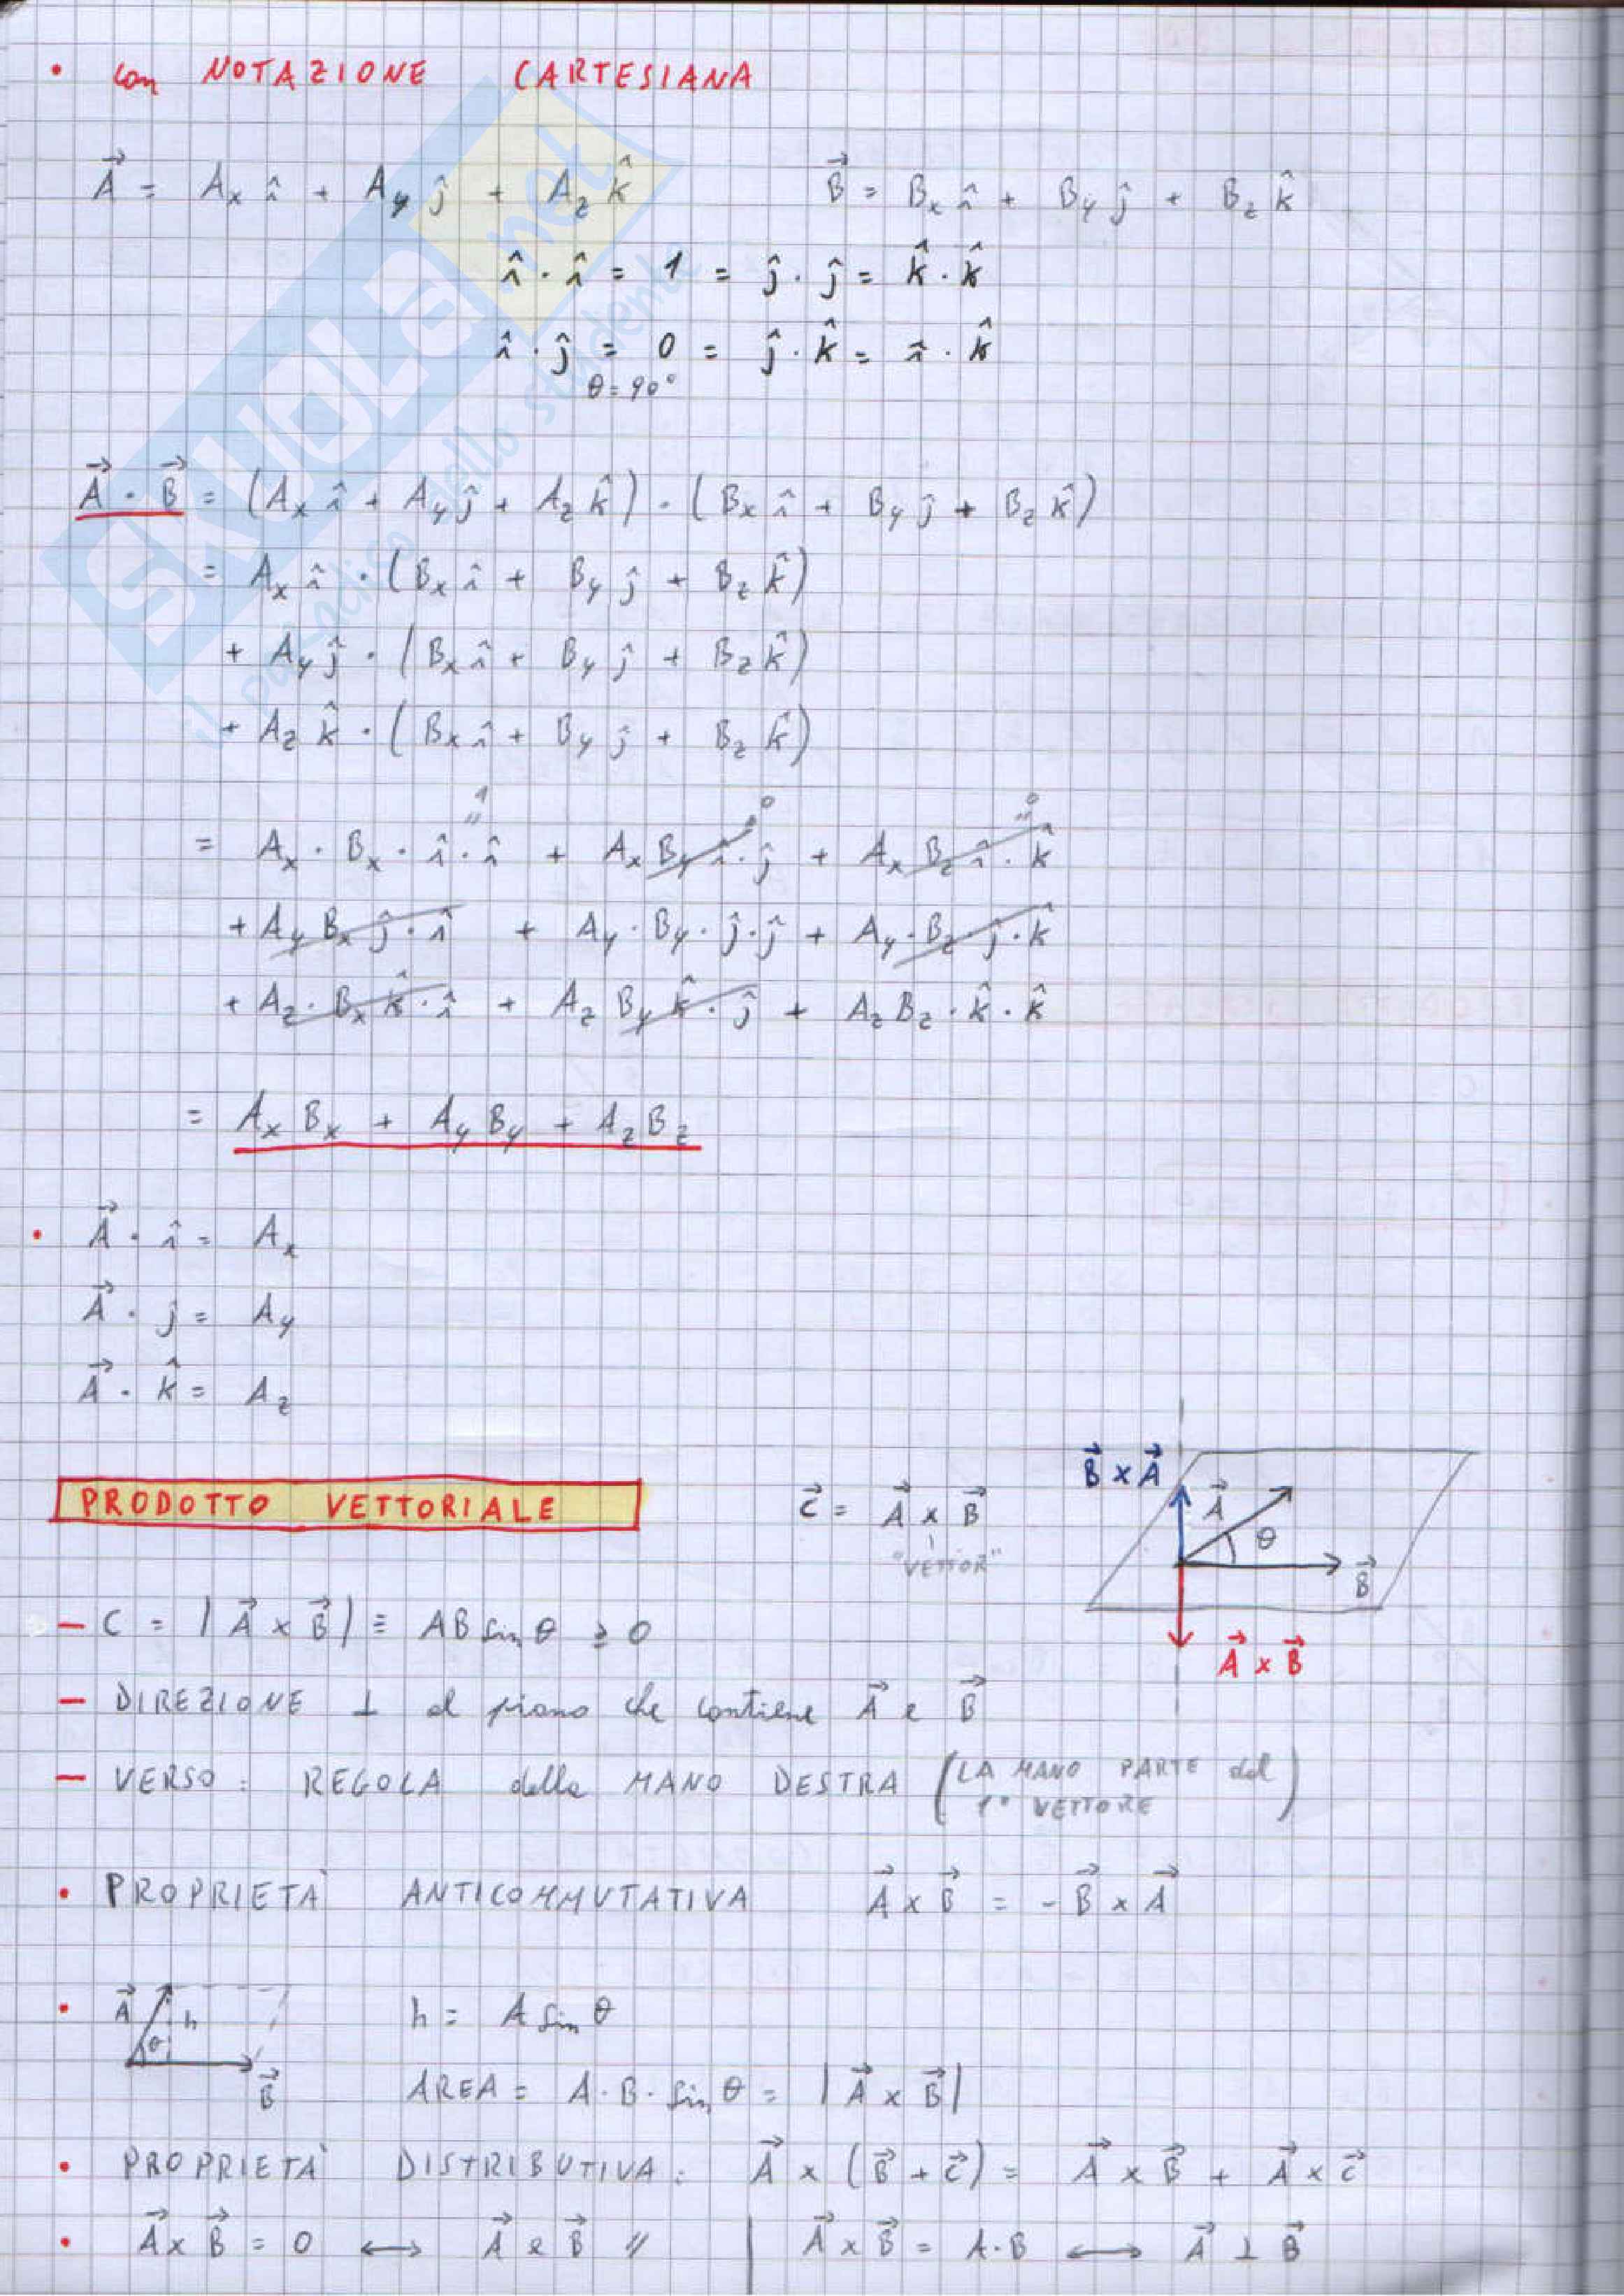 • con NOTAZIONE CARTESIANA
A⃗ = Aₓ î + A_y ĵ + A_z k̂     B⃗ = Bₓ î + B_y ĵ + B_z k̂
î · î = 1 = ĵ · ĵ = k̂ · k̂
î · ĵ = 0 = ĵ · k̂ = î · k̂
θ = 90°
A⃗ · B⃗ = (Aₓ î + A_y ĵ + A_z k̂) · (Bₓ î + B_y ĵ + B_z k̂)
= Aₓ î · (Bₓ î + B_y ĵ + B_z k̂)
+ A_y ĵ · (Bₓ î + B_y ĵ + B_z k̂)
+ A_z k̂ · (Bₓ î + B_y ĵ + B_z k̂)
1 0 0
= Aₓ · Bₓ · î · î + Aₓ B_y î · ĵ + Aₓ B_z î · k̂
+ A_y Bₓ ĵ · î + A_y · B_y · ĵ · ĵ + A_y · B_z ĵ · k̂
+ A_z · Bₓ k̂ · î + A_z B_y k̂ · ĵ + A_z B_z · k̂ · k̂
= Aₓ Bₓ + A_y B_y + A_z B_z
• A⃗ · î = Aₓ
A⃗ · j = A_y
A⃗ · k̂ = A_z
PRODOTTO VETTORIALE     C⃗ = A⃗ x B⃗
"VETTOR"
B⃗ x A⃗
A⃗
θ
B⃗
A⃗ x B⃗
— C = | A⃗ x B⃗ | ≡ AB sin θ ≥ 0
— DIREZIONE ⊥ al piano che contiene A⃗ e B⃗
— VERSO: REGOLA della MANO DESTRA (LA MANO PARTE dal
1° VETTORE)
• PROPRIETÀ ANTICOMMUTATIVA     A⃗ x B⃗ = - B⃗ x A⃗
• A⃗ h θ B⃗     h = A sin θ
AREA = A · B · sin θ = | A⃗ x B⃗ |
• PROPRIETÀ DISTRIBUTIVA: A⃗ x (B⃗ + C⃗) = A⃗ x B⃗ + A⃗ x C⃗
• A⃗ x B⃗ = 0 ⟷ A⃗ e B⃗ //  |  A⃗ x B⃗ = A·B ⟷ A⃗ ⊥ B⃗
SKUOLA.net
il paradiso dello studente